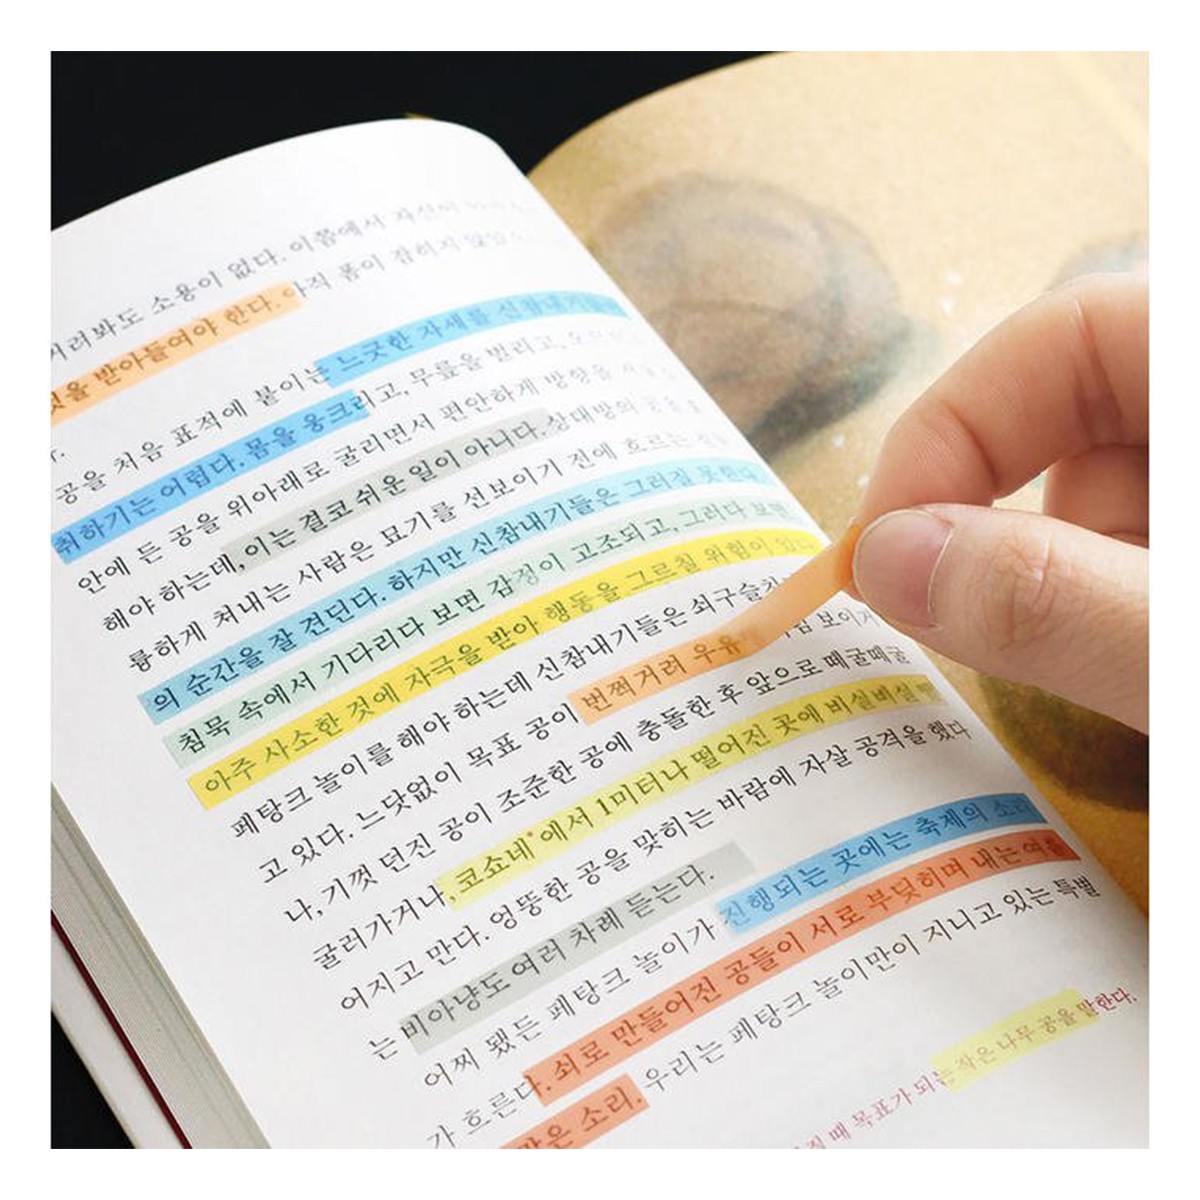 져려봐도 소용이 없다. 이쯤에서 자신이
것을 받아들여야 한다. 아직 폼이 잡히지
다.
공을 처음 표적에 붙이는 느긋한 자세를 신참내기들이
취하기는 어렵다. 몸을 웅크리고, 무릎을 벌리고,
안에 든 공을 위아래로 굴리면서 편안하게 방향을
해야 하는데, 이는 결코 쉬운 일이 아니다. 상대방의 공을
륭하게 쳐내는 사람은 묘기를 선보이기 전에 흐르는
의 순간을 잘 견딘다. 하지만 신참내기들은 그러질 못한다.
침묵 속에서 기다리다 보면 감정이 고조되고, 그러다 보면
아주 사소한 것에 자극을 받아 행동을 그르칠 위험이 있다.
페탕크 놀이를 해야 하는데 신참내기들은 쇠구슬치기
고 있다. 느닷없이 목표 공이 번쩍거려 우유 보이지
나, 기껏 던진 공이 조준한 공에 충돌한 후 앞으로 떼굴떼굴
굴러가거나, 코쇼네*에서 1미터나 떨어진 곳에 비실비실
어지고 만다. 엉뚱한 공을 맞히는 바람에 자살 공격을 했다
는 비아냥도 여러 차례 듣는다.
어찌 됐든 페탕크 놀이가 진행되는 곳에는 축제의 소리
가 흐른다. 쇠로 만들어진 공들이 서로 부딪히며 내는 여름
맑은 소리. 우리는 페탕크 놀이만이 지니고 있는 특별
때 목표가 되는 작은 나무 공을 말한다.